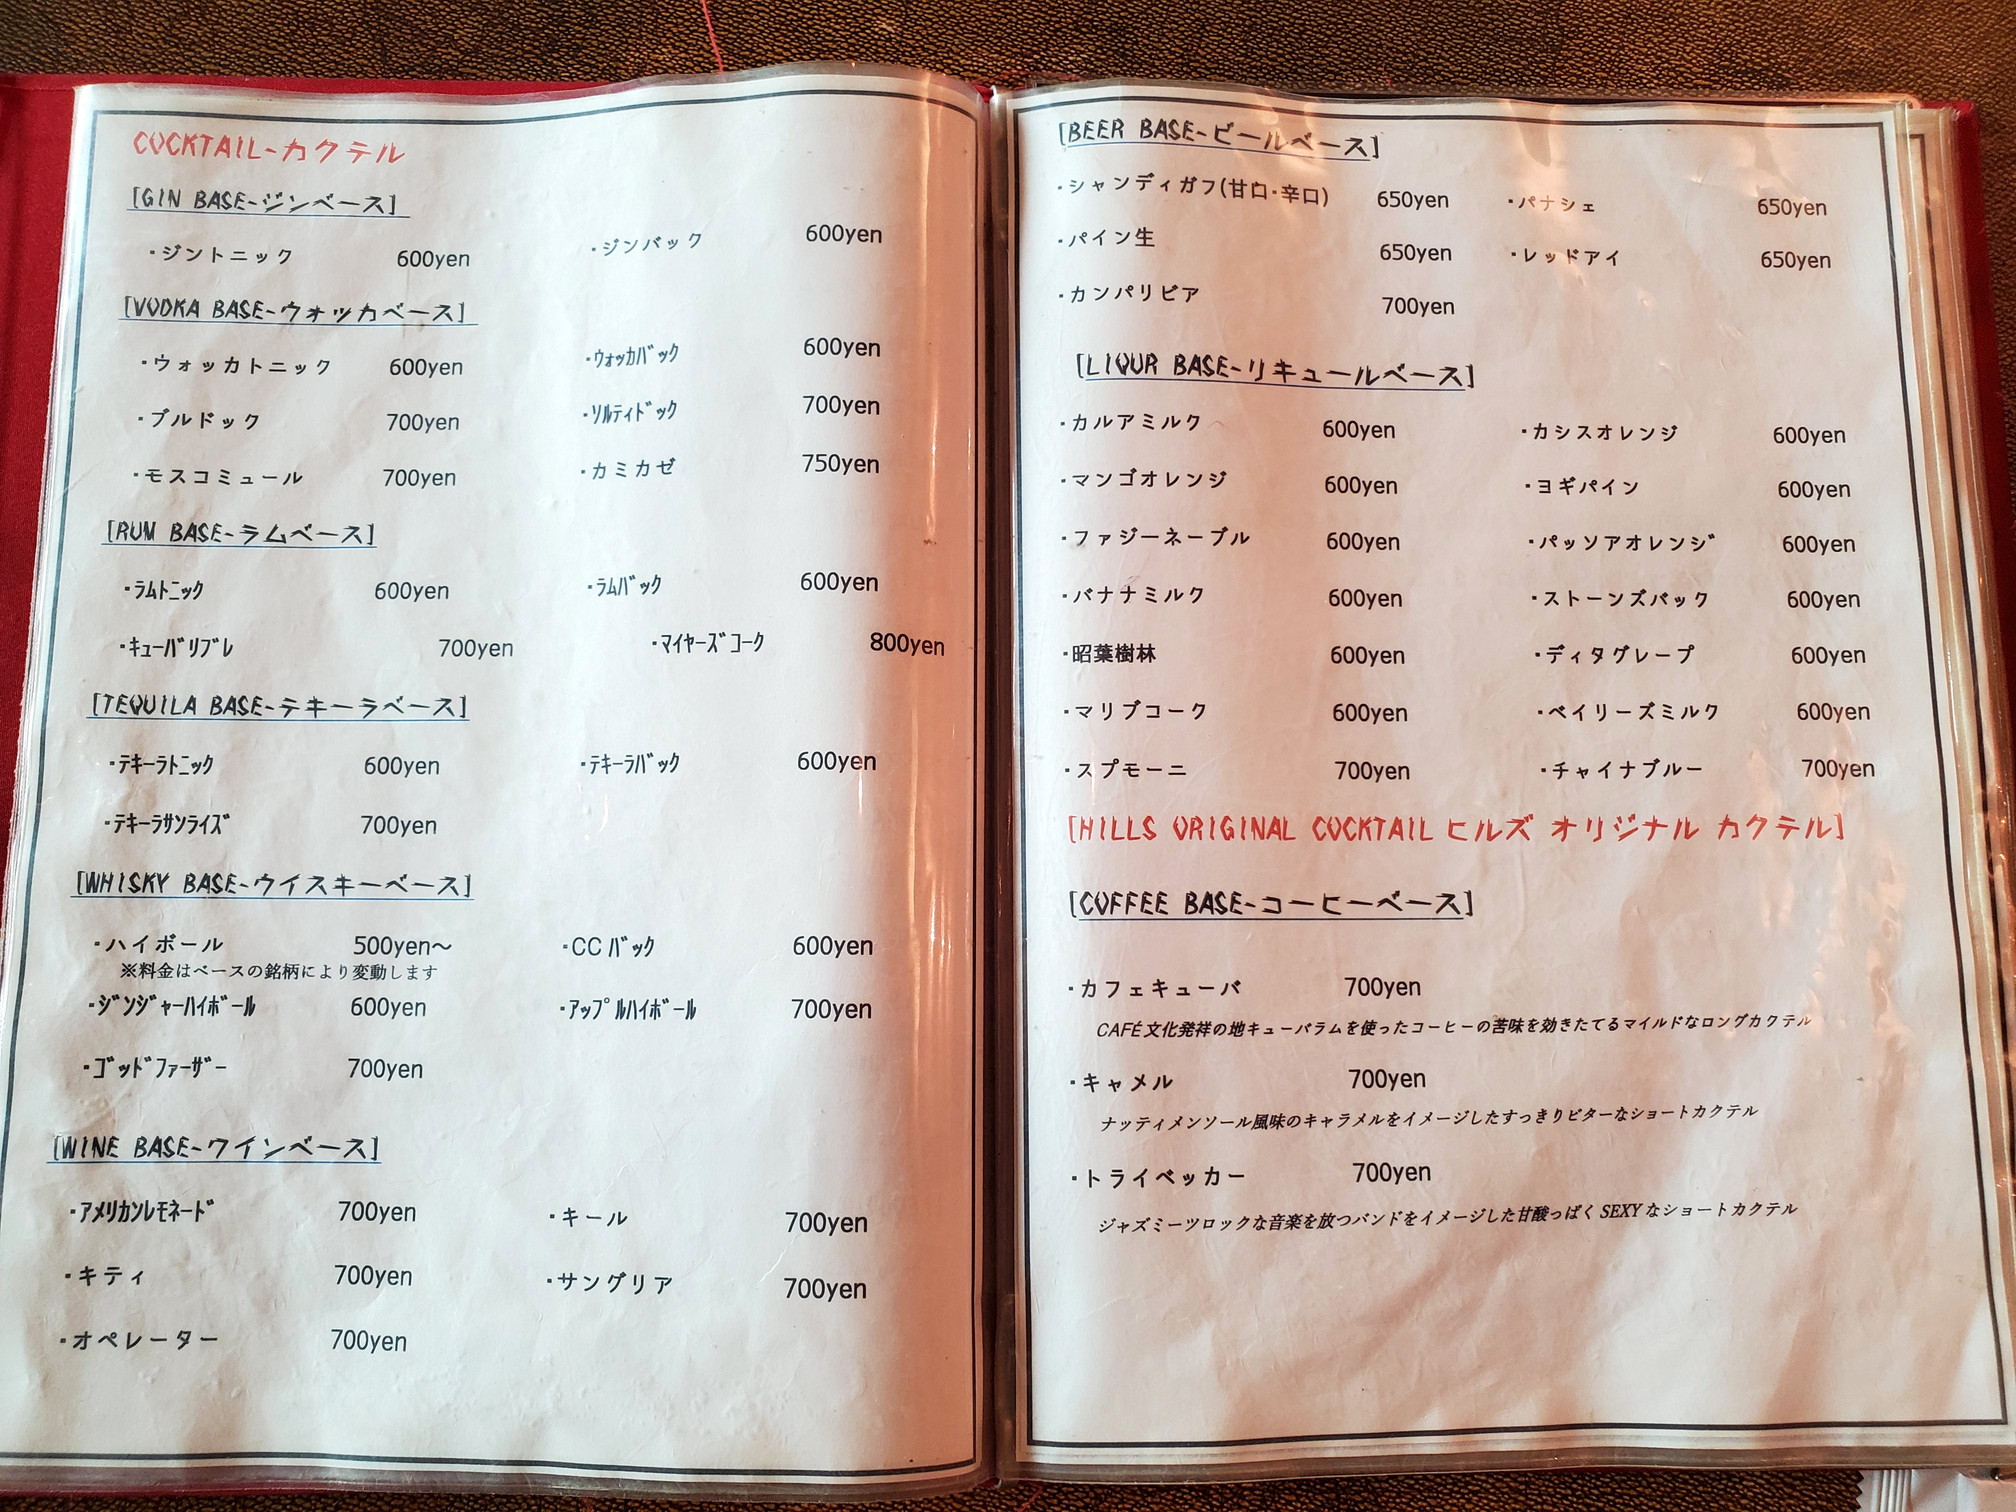 COCKTAIL-カクテル
[GIN BASE-ジンベース]
・ジントニック 600yen ・ジンバック 600yen
[VODKA BASE-ウォッカベース]
・ウォッカトニック 600yen ・ウォッカバック 600yen
・ブルドック 700yen ・ソルティドック 700yen
・モスコミュール 700yen ・カミカゼ 750yen
[RUM BASE-ラムベース]
・ラムトニック 600yen ・ラムバック 600yen
・キューバリブレ 700yen ・マイヤーズコーク 800yen
[TEQUILA BASE-テキーラベース]
・テキーラトニック 600yen ・テキーラバック 600yen
・テキーラサンライズ 700yen
[WHISKY BASE-ウイスキーベース]
・ハイボール 500yen〜 ・CCバック 600yen
※料金はベースの銘柄により変動します
・ジンジャーハイボール 600yen ・アップルハイボール 700yen
・ゴッドファーザー 700yen
[WINE BASE-ワインベース]
・アメリカンレモネード 700yen ・キール 700yen
・キティ 700yen ・サングリア 700yen
・オペレーター 700yen
[BEER BASE-ビールベース]
・シャンディガフ(甘口・辛口) 650yen ・パナシェ 650yen
・パイン生 650yen ・レッドアイ 650yen
・カンパリビア 700yen
[LIQUR BASE-リキュールベース]
・カルアミルク 600yen ・カシスオレンジ 600yen
・マンゴオレンジ 600yen ・ヨギパイン 600yen
・ファジーネーブル 600yen ・パッソアオレンジ 600yen
・バナナミルク 600yen ・ストーンズバック 600yen
・昭葉樹林 600yen ・ディタグレープ 600yen
・マリブコーク 600yen ・ベイリーズミルク 600yen
・スプモーニ 700yen ・チャイナブルー 700yen
[HILLS ORIGINAL COCKTAIL ヒルズ オリジナル カクテル]
[COFFEE BASE-コーヒーベース]
・カフェキューバ 700yen
CAFÉ文化発祥の地キューバラムを使ったコーヒーの苦味を効きたてるマイルドなロングカクテル
・キャメル 700yen
ナッティメンソール風味のキャラメルをイメージしたすっきりビターなショートカクテル
・トライベッカー 700yen
ジャズミーツロックな音楽を放つバンドをイメージした甘酸っぱくSEXYなショートカクテル